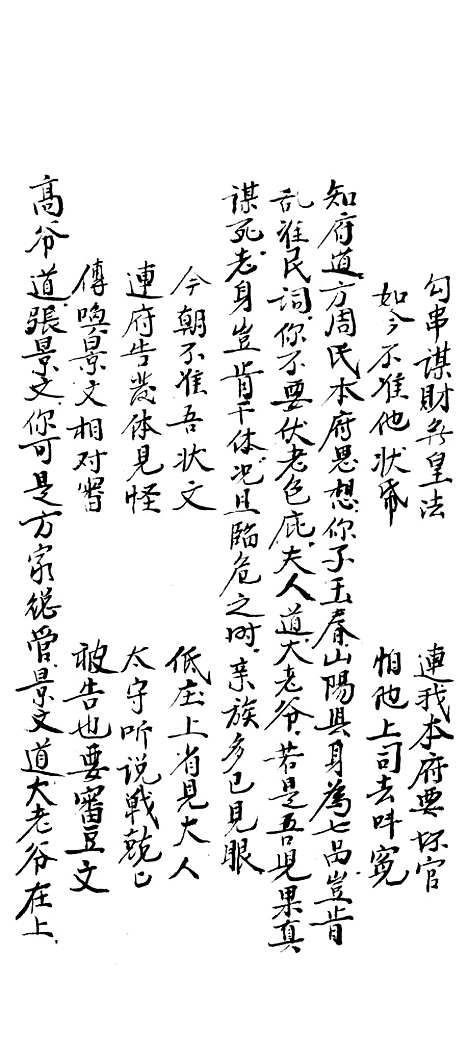 勾串謀財無皇法　連我本府要坏官
如今不准他状𢂷　怕他上司去叫寃
知府道方周氏本府思想你子玉春山陽県身為七品豈肯
乱准民詞你不要伏老包庇夫人道大老爷若是吾児果真
謀死老身豈肯干休况且臨危之时亲族多已見眼
今朝不准吾状文　低庄上省見大人
連府告發体見怪　太守听说戦兢匕
傳喚景文相对審　被告也要審豆文
高爷道張景文你可是方家緫管景文道大老爷在上